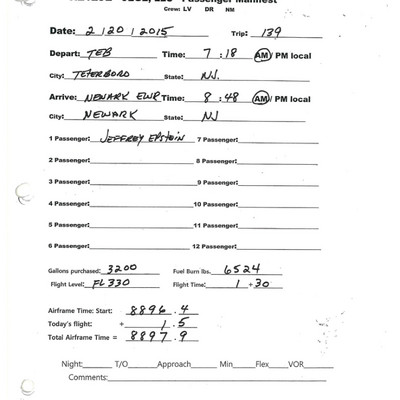 Passenger Manifest
Crew: LV DR NM
Date: 2 | 20 | 2015 Trip: 139
Depart: TEB Time: 7 : 18 AM / PM local
City: TETERBORO State: NJ.
Arrive: NEWARK EWR Time: 8 : 48 AM / PM local
City: NEWARK State: NJ
1 Passenger: JEFFREY EPSTEIN 7 Passenger:
2 Passenger: 8 Passenger:
3 Passenger: 9 Passenger:
4 Passenger: 10 Passenger:
5 Passenger: 11 Passenger:
6 Passenger: 12 Passenger:
Gallons purchased: 3200 Fuel Burn lbs. 6524
Flight Level: FL330 Flight Time: 1 + 30
Airframe Time: Start: 8896 . 4
Today's flight: + 1 . 5
Total Airframe Time = 8897 . 9
Night: T/O Approach Min Flex VOR
Comments: